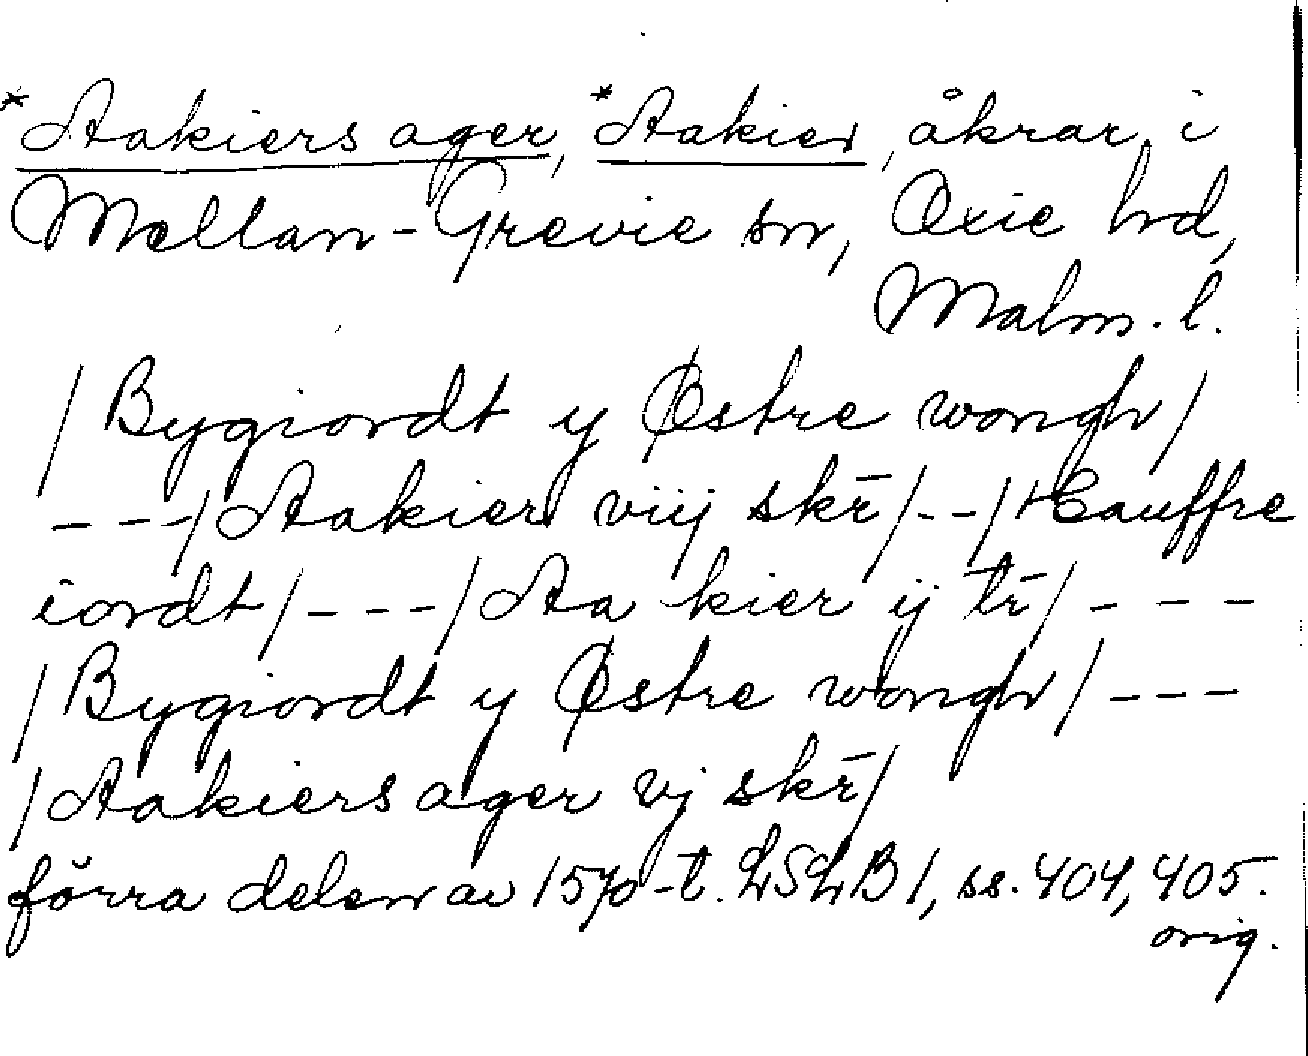 *Aakiers ager, *Aakier, åkrar i
Mellan-Grevie sn, Oxie hd,
Malm. l.
/Bygiordt y Østre wongh/
---/Aakier viij skr̄/--/Hauffre
iordt/---/Aa kier ij tr̄/---
/Bygiordt y Østre wongh/---
/Aakiers ager vj skr̄/
förra delen av 1570-t. LSLB 1, ss. 404, 405.
orig.